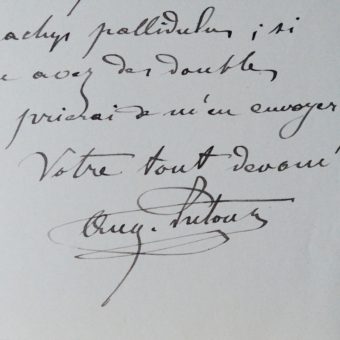 achys pallidulus ; si
avez des doubles
prierai de m'en envoyer
Votre tout dévoué
Aug.